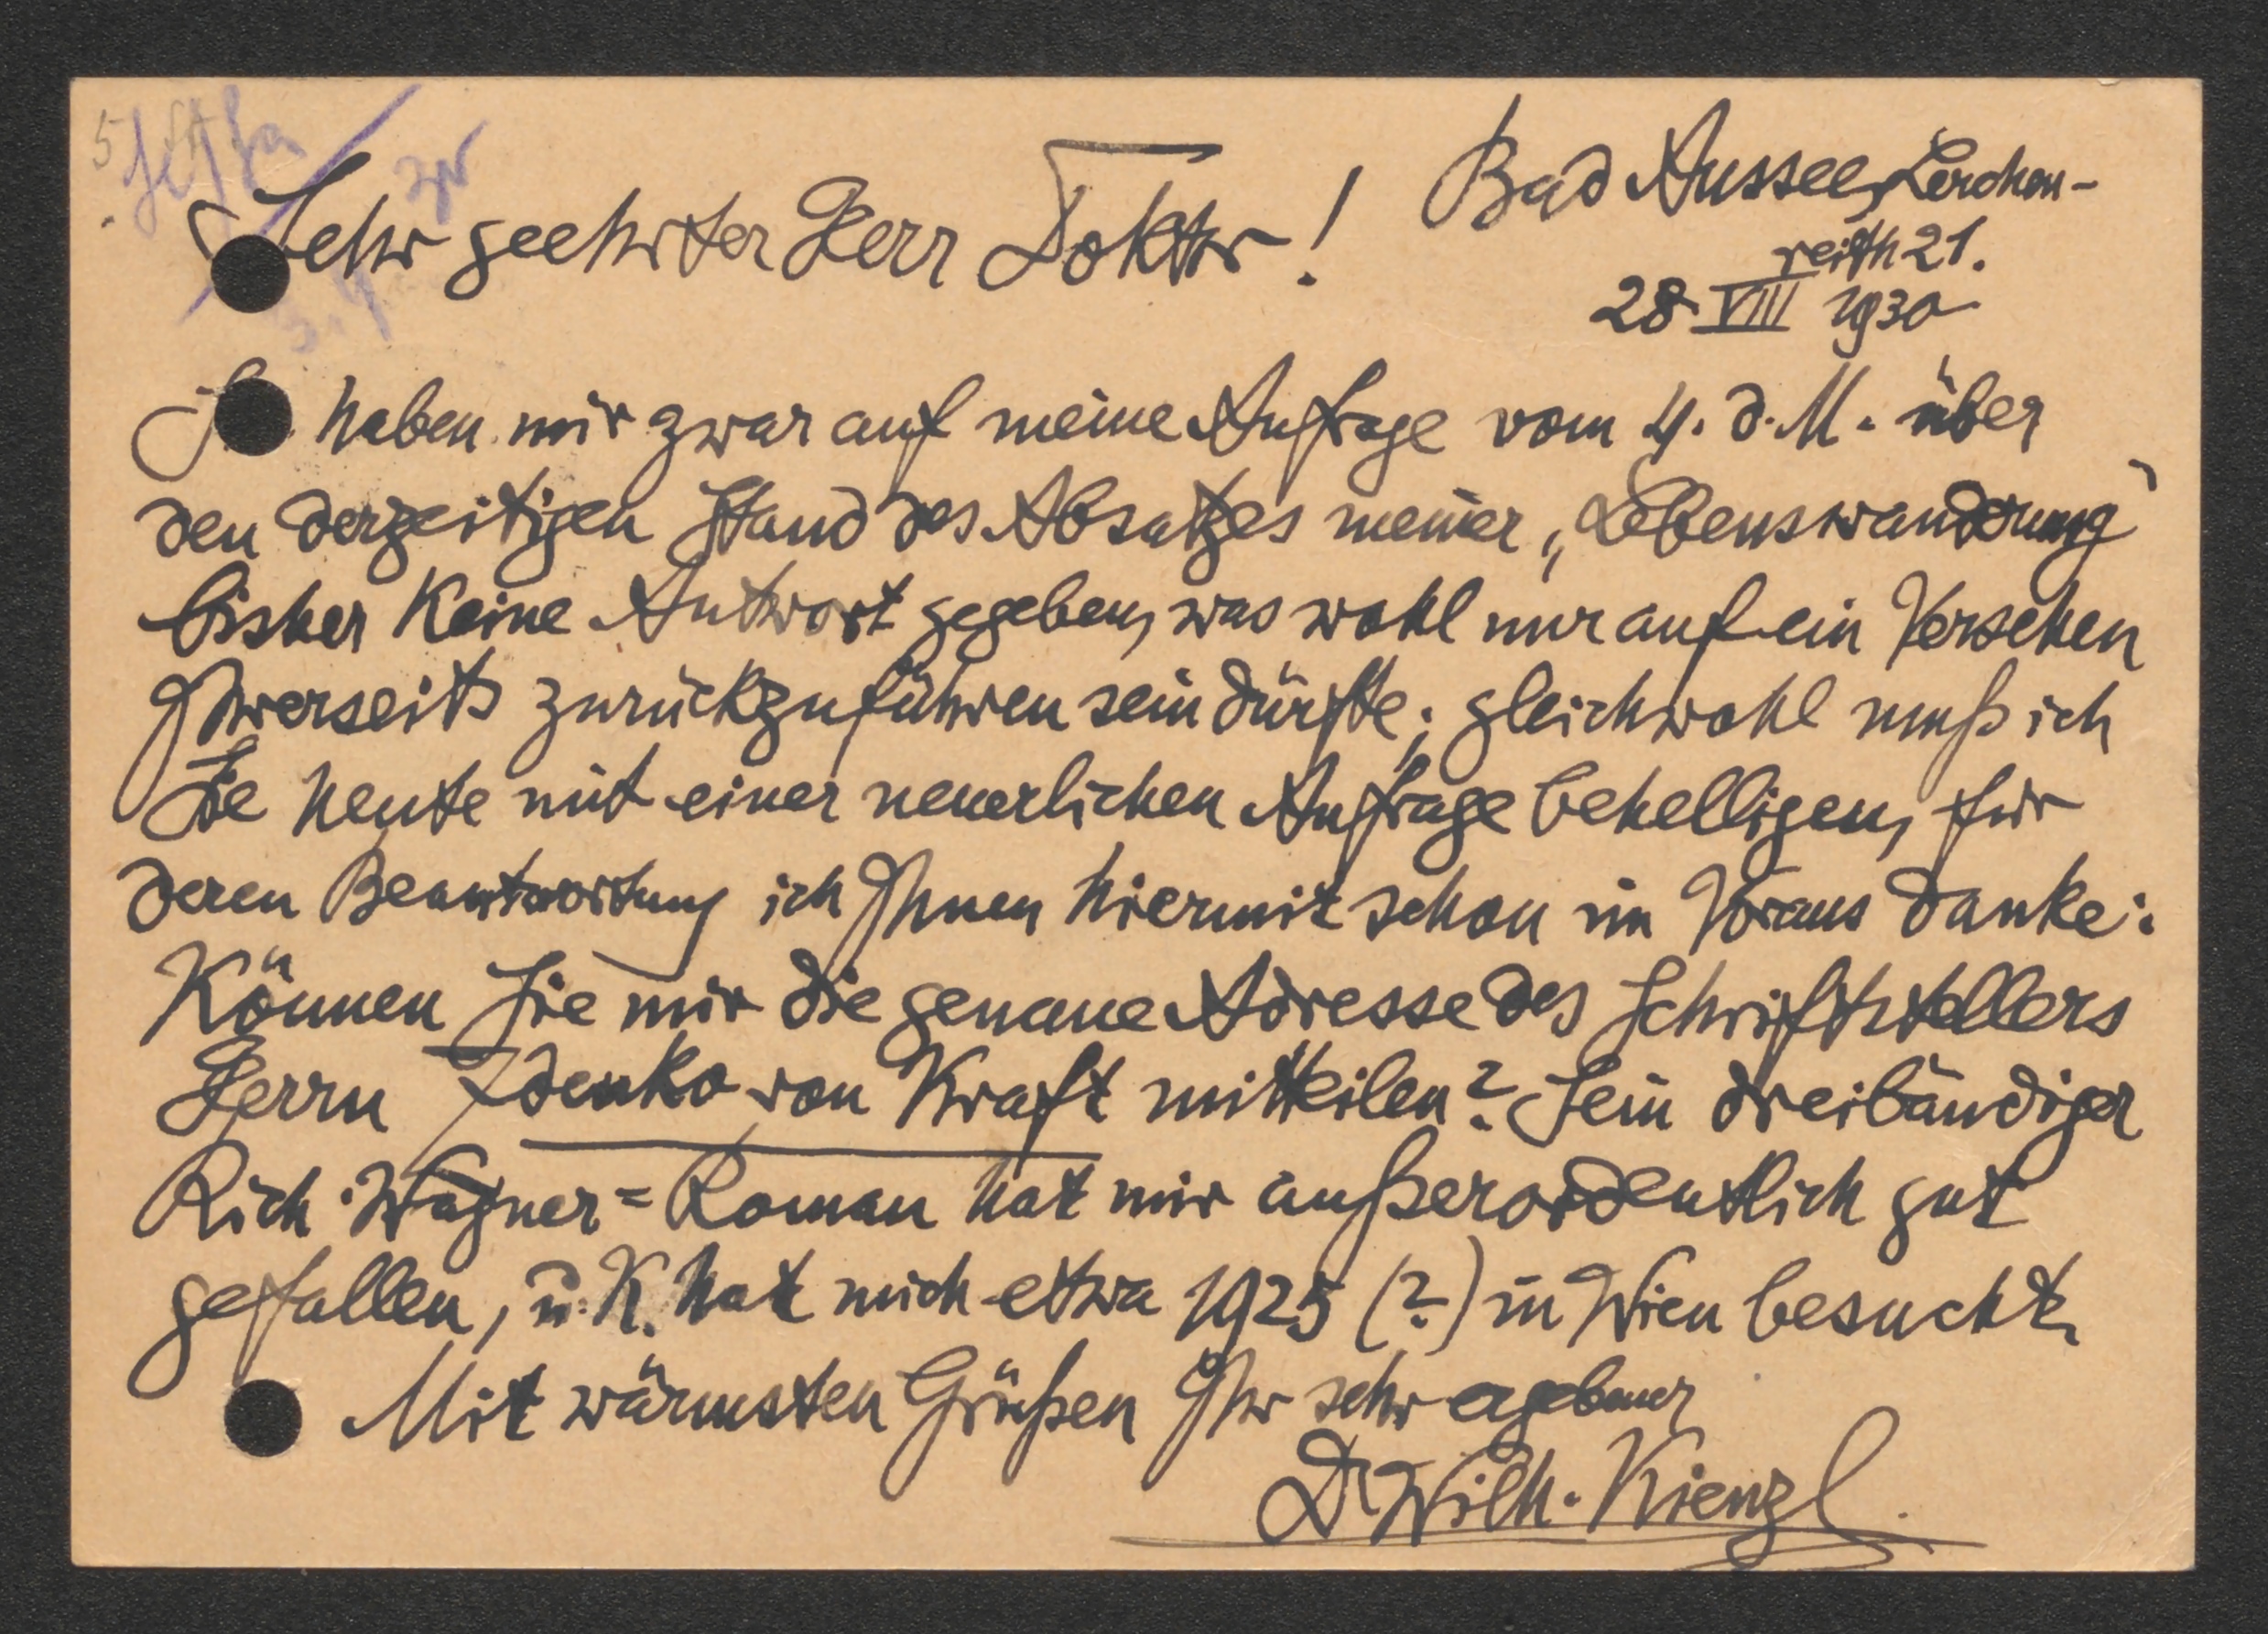 Bad Aussee, Lerchen-
reith 21.
28. VIII 1930
Sehr geehrter Herr Doktor!
haben mir zwar auf meine Anfrage vom 4. d. M. über
den derzeitigen Stand des Absatzes meiner „Lebenswanderung“
bisher keine Antwort gegeben, was wohl nur auf ein Versehen
Ihrerseits zurückzuführen sein dürfte; gleichwohl muß ich
Sie heute mit einer neuerlichen Anfrage behelligen, für
deren Beantwortung ich Ihnen hiermit schon im Voraus danke:
Können Sie mir die genaue Adresse des Schriftstellers
Herrn Zdenko von Kraft mitteilen? Sein dreibändiger
Rich. Wagner=Roman hat mir außerordentlich gut
gefallen, u. K. hat mich etwa 1925 (?) in Wien besucht.
Mit wärmsten Grüßen Ihr sehr ergebener
Dr Wilh. Kienzl